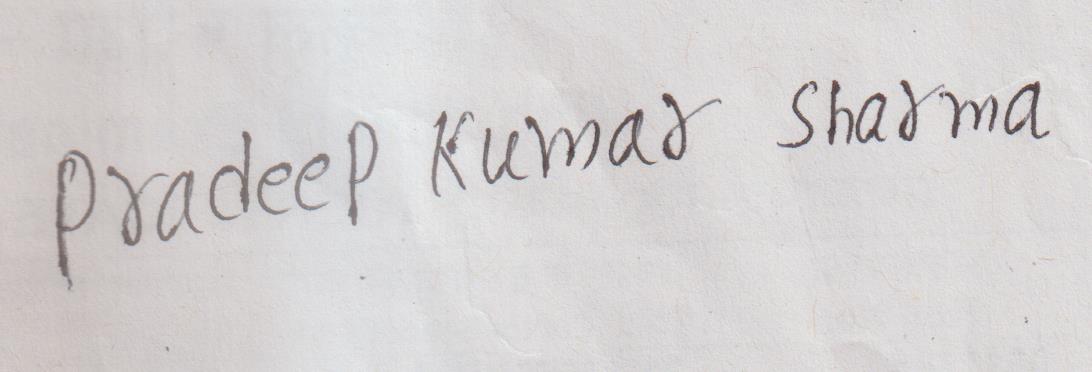 Pradeep Kumar Sharma